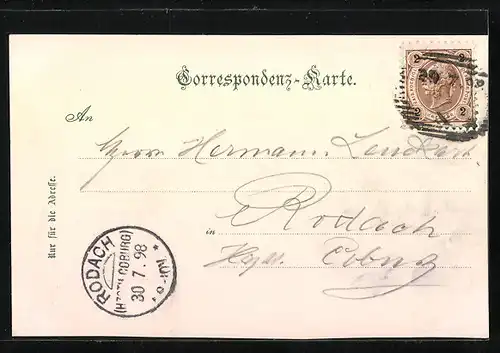 2 2
Correspondenz-Karte.
2 2
An
Herrn Hermann
Nur für die Adresse.
in Rodach
Coburg
RODACH
(HZGTH. COBURG)
30 7. 98